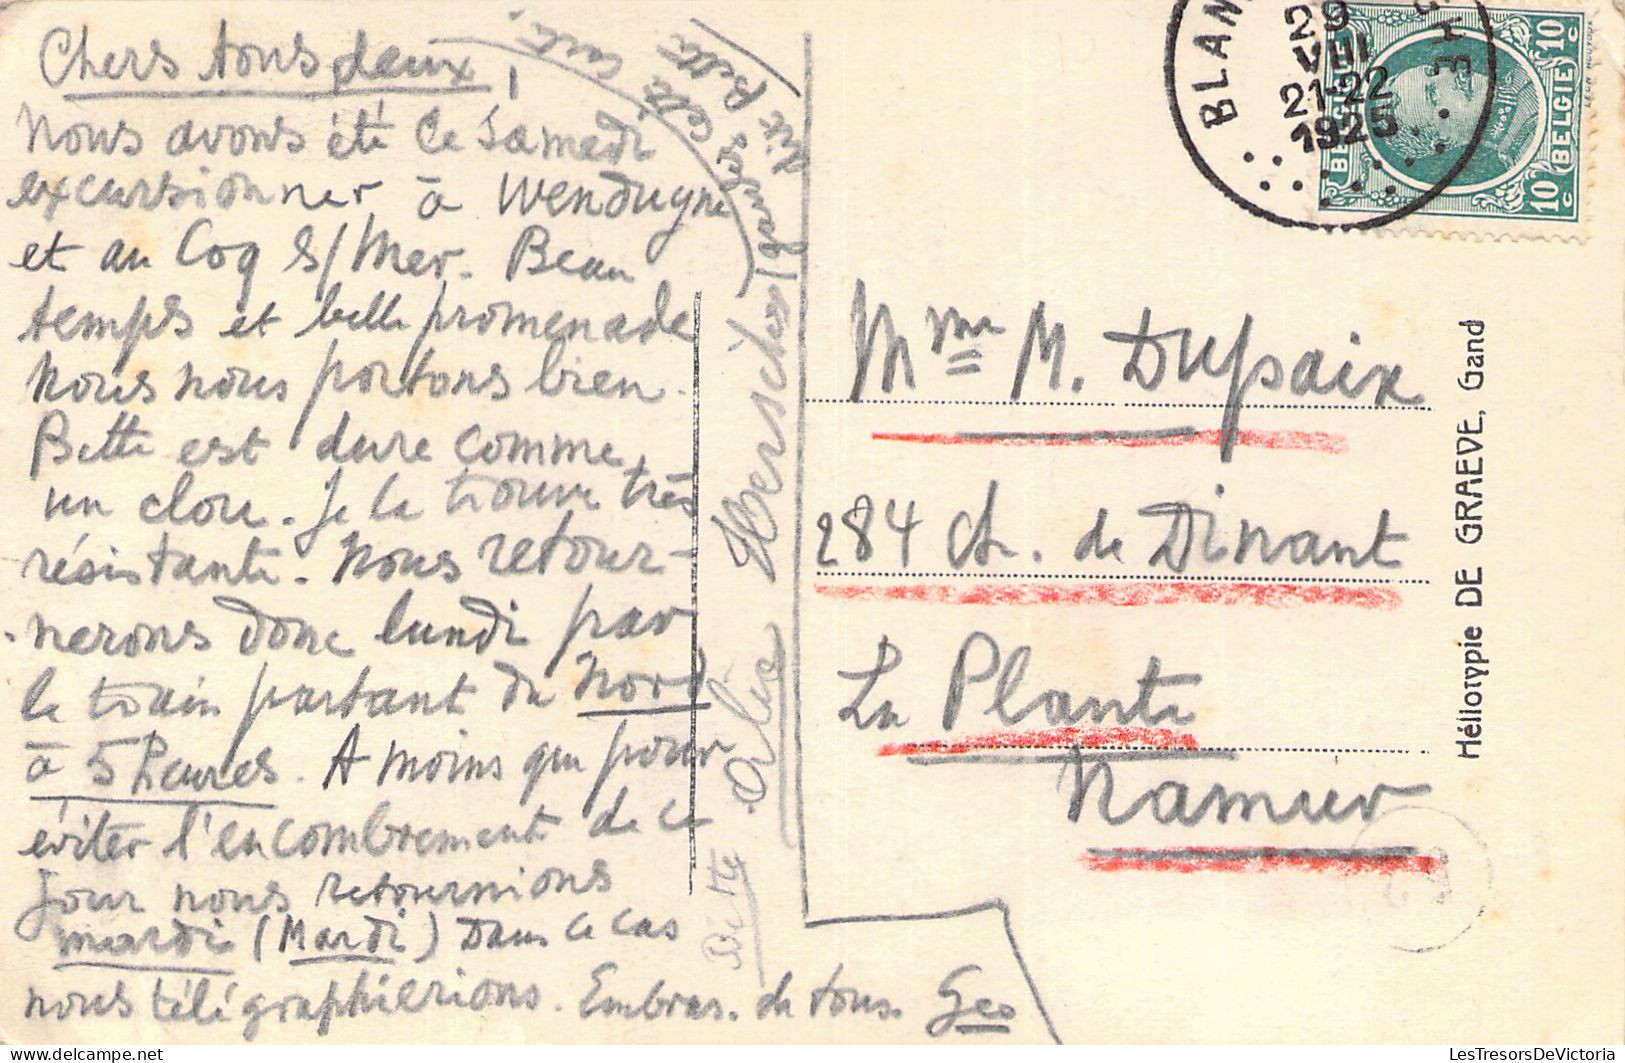 Chers tous deux,
Nous avons été ce Samedi
excursionner à Wenduyne
et au Coq s/Mer. Beau
temps et belle promenade
Nous nous portons bien.
Bette est dure comme
un clou. Je la trouve très
résistante. Nous retour-
nerons donc lundi par
le train partant du Nord
à 5 heures. A moins que pour
éviter l'encombrement de ce
jour nous retournions
mardi (Mardi) Dans ce cas
nous télégraphierions. Embras. de tous. Geo
cette carte
Bette
BLAN GHE
29
VIII
21-22
1925
BELGIE
10 c
10 c
Mme M. Dupaix
284 ch. de Dinant
La Plante
Namur
Héliotypie DE GRAEVE, Gand
LesTresorsDeVictoria